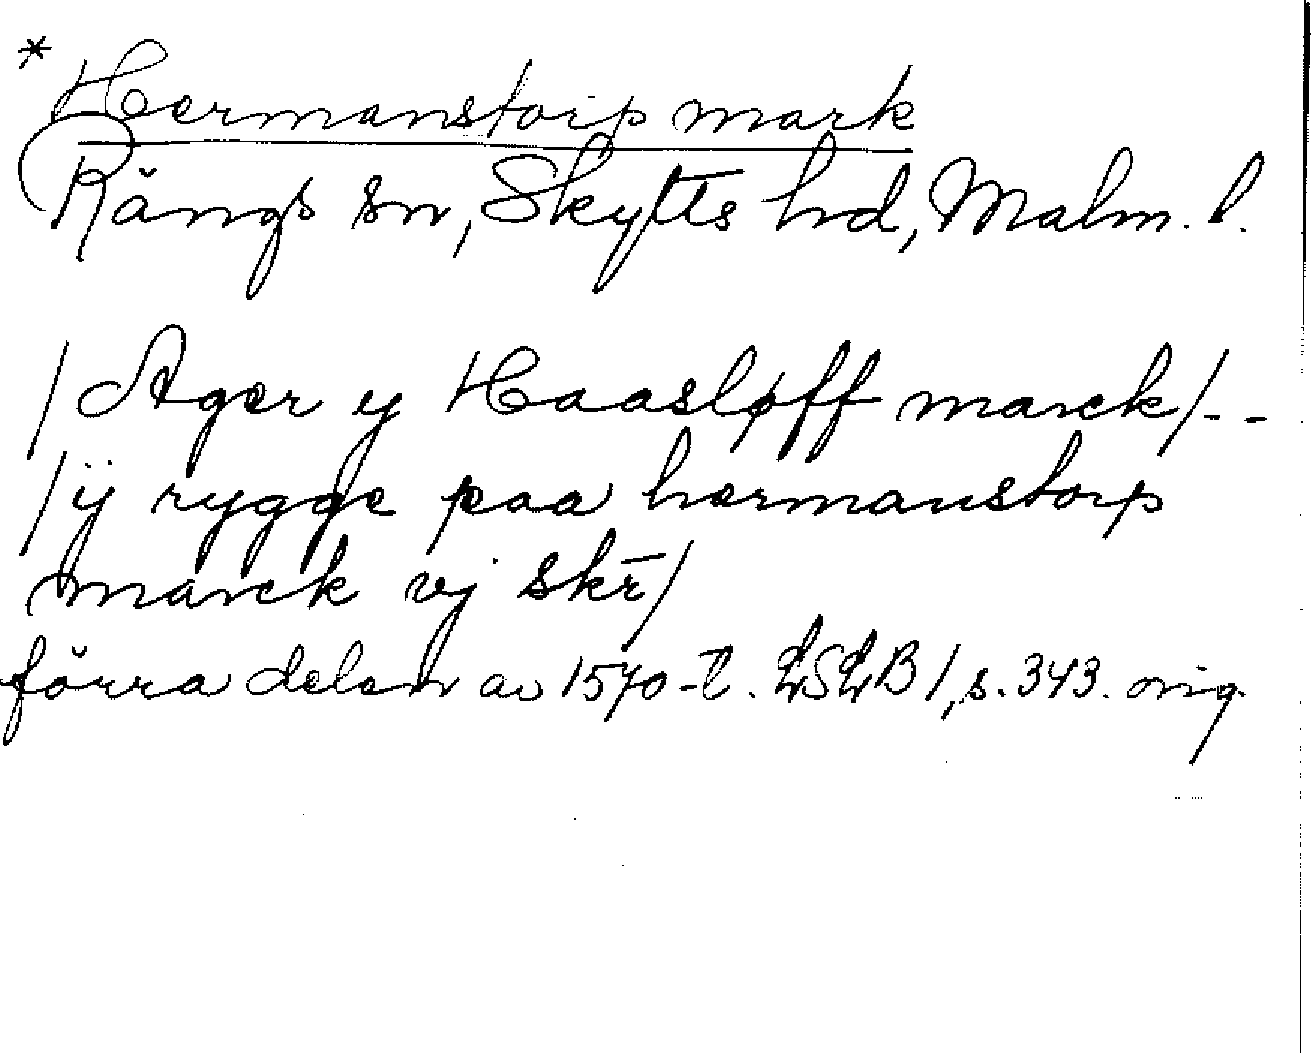 * Hermanstorp mark
Rängs sn, Skytts hd, Malm. l.
/Ager y Haasløff marck/--
/ÿ rygge paa hermanstorp
marck vj skr̄/
förra delen av 1570-t. LSLB 1, s. 343. orig.